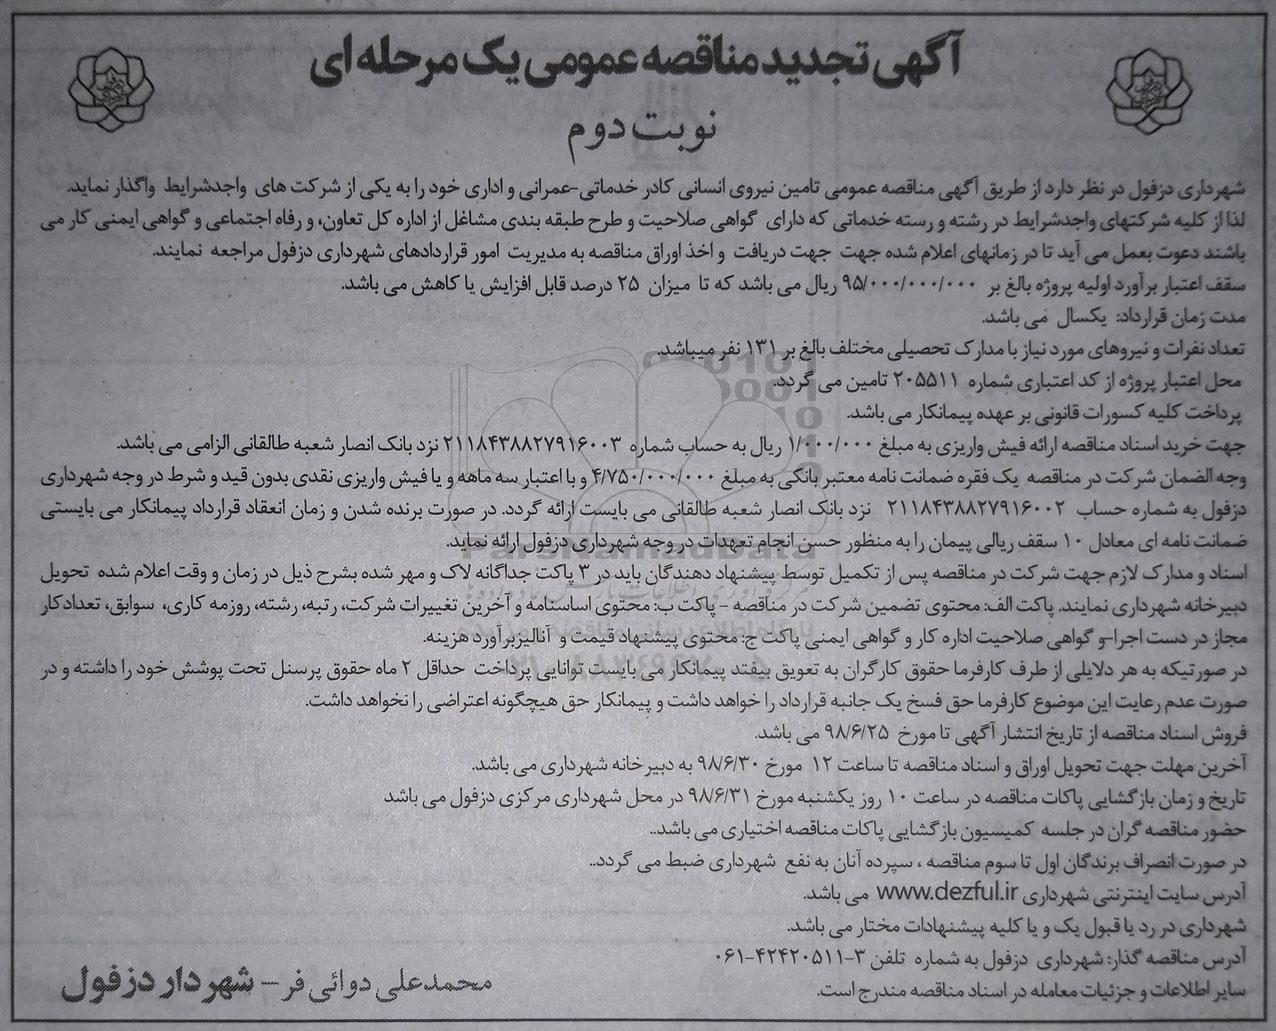 آگهی تجدید مناقصه عمومی یک مرحله ای
نوبت دوم
شهرداری دزفول در نظر دارد از طریق آگهی مناقصه عمومی تامین نیروی انسانی کادر خدماتی-عمرانی و اداری خود را به یکی از شرکت های واجدشرایط واگذار نماید.
لذا از کلیه شرکتهای واجدشرایط در رشته و رسته خدماتی که دارای گواهی صلاحیت و طرح طبقه بندی مشاغل از اداره کل تعاون، و رفاه اجتماعی و گواهی ایمنی کار می
باشند دعوت بعمل می آید تا در زمانهای اعلام شده جهت جهت دریافت و اخذ اوراق مناقصه به مدیریت امور قراردادهای شهرداری دزفول مراجعه نمایند.
سقف اعتبار برآورد اولیه پروژه بالغ بر ۹۵/۰۰۰/۰۰۰/۰۰۰ ریال می باشد که تا میزان ۲۵ درصد قابل افزایش یا کاهش می باشد.
مدت زمان قرارداد: یکسال می باشد.
تعداد نفرات و نیروهای مورد نیاز با مدارک تحصیلی مختلف بالغ بر ۱۳۱ نفر میباشد.
محل اعتبار پروژه از کد اعتباری شماره ۲۰۵۵۱۱ تامین می گردد.
پرداخت کلیه کسورات قانونی بر عهده پیمانکار می باشد.
جهت خرید اسناد مناقصه ارائه فیش واریزی به مبلغ ۱/۰۰۰/۰۰۰ ریال به حساب شماره ۲۱۱۸۴۳۸۸۲۷۹۱۶۰۰۳ نزد بانک انصار شعبه طالقانی الزامی می باشد.
وجه الضمان شرکت در مناقصه یک فقره ضمانت نامه معتبر بانکی به مبلغ ۴/۷۵۰/۰۰۰/۰۰۰ و با اعتبار سه ماهه و یا فیش واریزی نقدی بدون قید و شرط در وجه شهرداری
دزفول به شماره حساب ۲۱۱۸۴۳۸۸۲۷۹۱۶۰۰۲ نزد بانک انصار شعبه طالقانی می بایست ارائه گردد. در صورت برنده شدن و زمان انعقاد قرارداد پیمانکار می بایستی
ضمانت نامه ای معادل ۱۰ سقف ریالی پیمان را به منظور حسن انجام تعهدات در وجه شهرداری دزفول ارائه نماید.
اسناد و مدارک لازم جهت شرکت در مناقصه پس از تکمیل توسط پیشنهاد دهندگان باید در ۳ پاکت جداگانه لاک و مهر شده بشرح ذیل در زمان و وقت اعلام شده تحویل
دبیرخانه شهرداری نمایند. پاکت الف: محتوی تضمین شرکت در مناقصه - پاکت ب: محتوی اساسنامه و آخرین تغییرات شرکت، رتبه، رشته، روزمه کاری، سوابق، تعدادکار
مجاز در دست اجرا-و گواهی صلاحیت اداره کار و گواهی ایمنی پاکت ج: محتوی پیشنهاد قیمت و آنالیزبرآورد هزینه.
در صورتیکه به هر دلایلی از طرف کارفرما حقوق کارگران به تعویق بیفتد پیمانکار می بایست توانایی پرداخت حداقل ۲ ماه حقوق پرسنل تحت پوشش خود را داشته و در
صورت عدم رعایت این موضوع کارفرما حق فسخ یک جانبه قرارداد را خواهد داشت و پیمانکار حق هیچگونه اعتراضی را نخواهد داشت.
فروش اسناد مناقصه از تاریخ انتشار آگهی تا مورخ ۹۸/۶/۲۵ می باشد.
آخرین مهلت جهت تحویل اوراق و اسناد مناقصه تا ساعت ۱۲ مورخ ۹۸/۶/۳۰ به دبیرخانه شهرداری می باشد.
تاریخ و زمان بازگشایی پاکات مناقصه در ساعت ۱۰ روز یکشنبه مورخ ۹۸/۶/۳۱ در محل شهرداری مرکزی دزفول می باشد
حضور مناقصه گران در جلسه کمیسیون بازگشایی پاکات مناقصه اختیاری می باشد..
در صورت انصراف برندگان اول تا سوم مناقصه ، سپرده آنان به نفع شهرداری ضبط می گردد..
آدرس سایت اینترنتی شهرداری www.dezful.ir می باشد.
شهرداری در رد یا قبول یک و یا کلیه پیشنهادات مختار می باشد.
آدرس مناقصه گذار: شهرداری دزفول به شماره تلفن ۳-۴۲۴۲۰۵۱۱-۰۶۱
سایر اطلاعات و جزئیات معامله در اسناد مناقصه مندرج است.
محمدعلی دوائی فر - شهردار دزفول